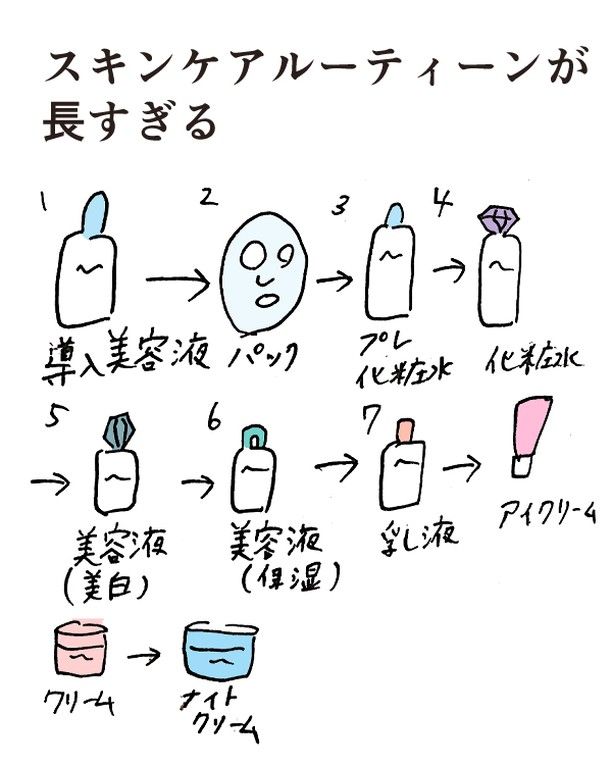 スキンケアルーティーンが
長すぎる
1
2
3
4
導入美容液
パック
プレ
化粧水
化粧水
5
6
7
美容液
(美白)
美容液
(保湿)
乳液
アイクリーム
クリーム
ナイト
クリーム